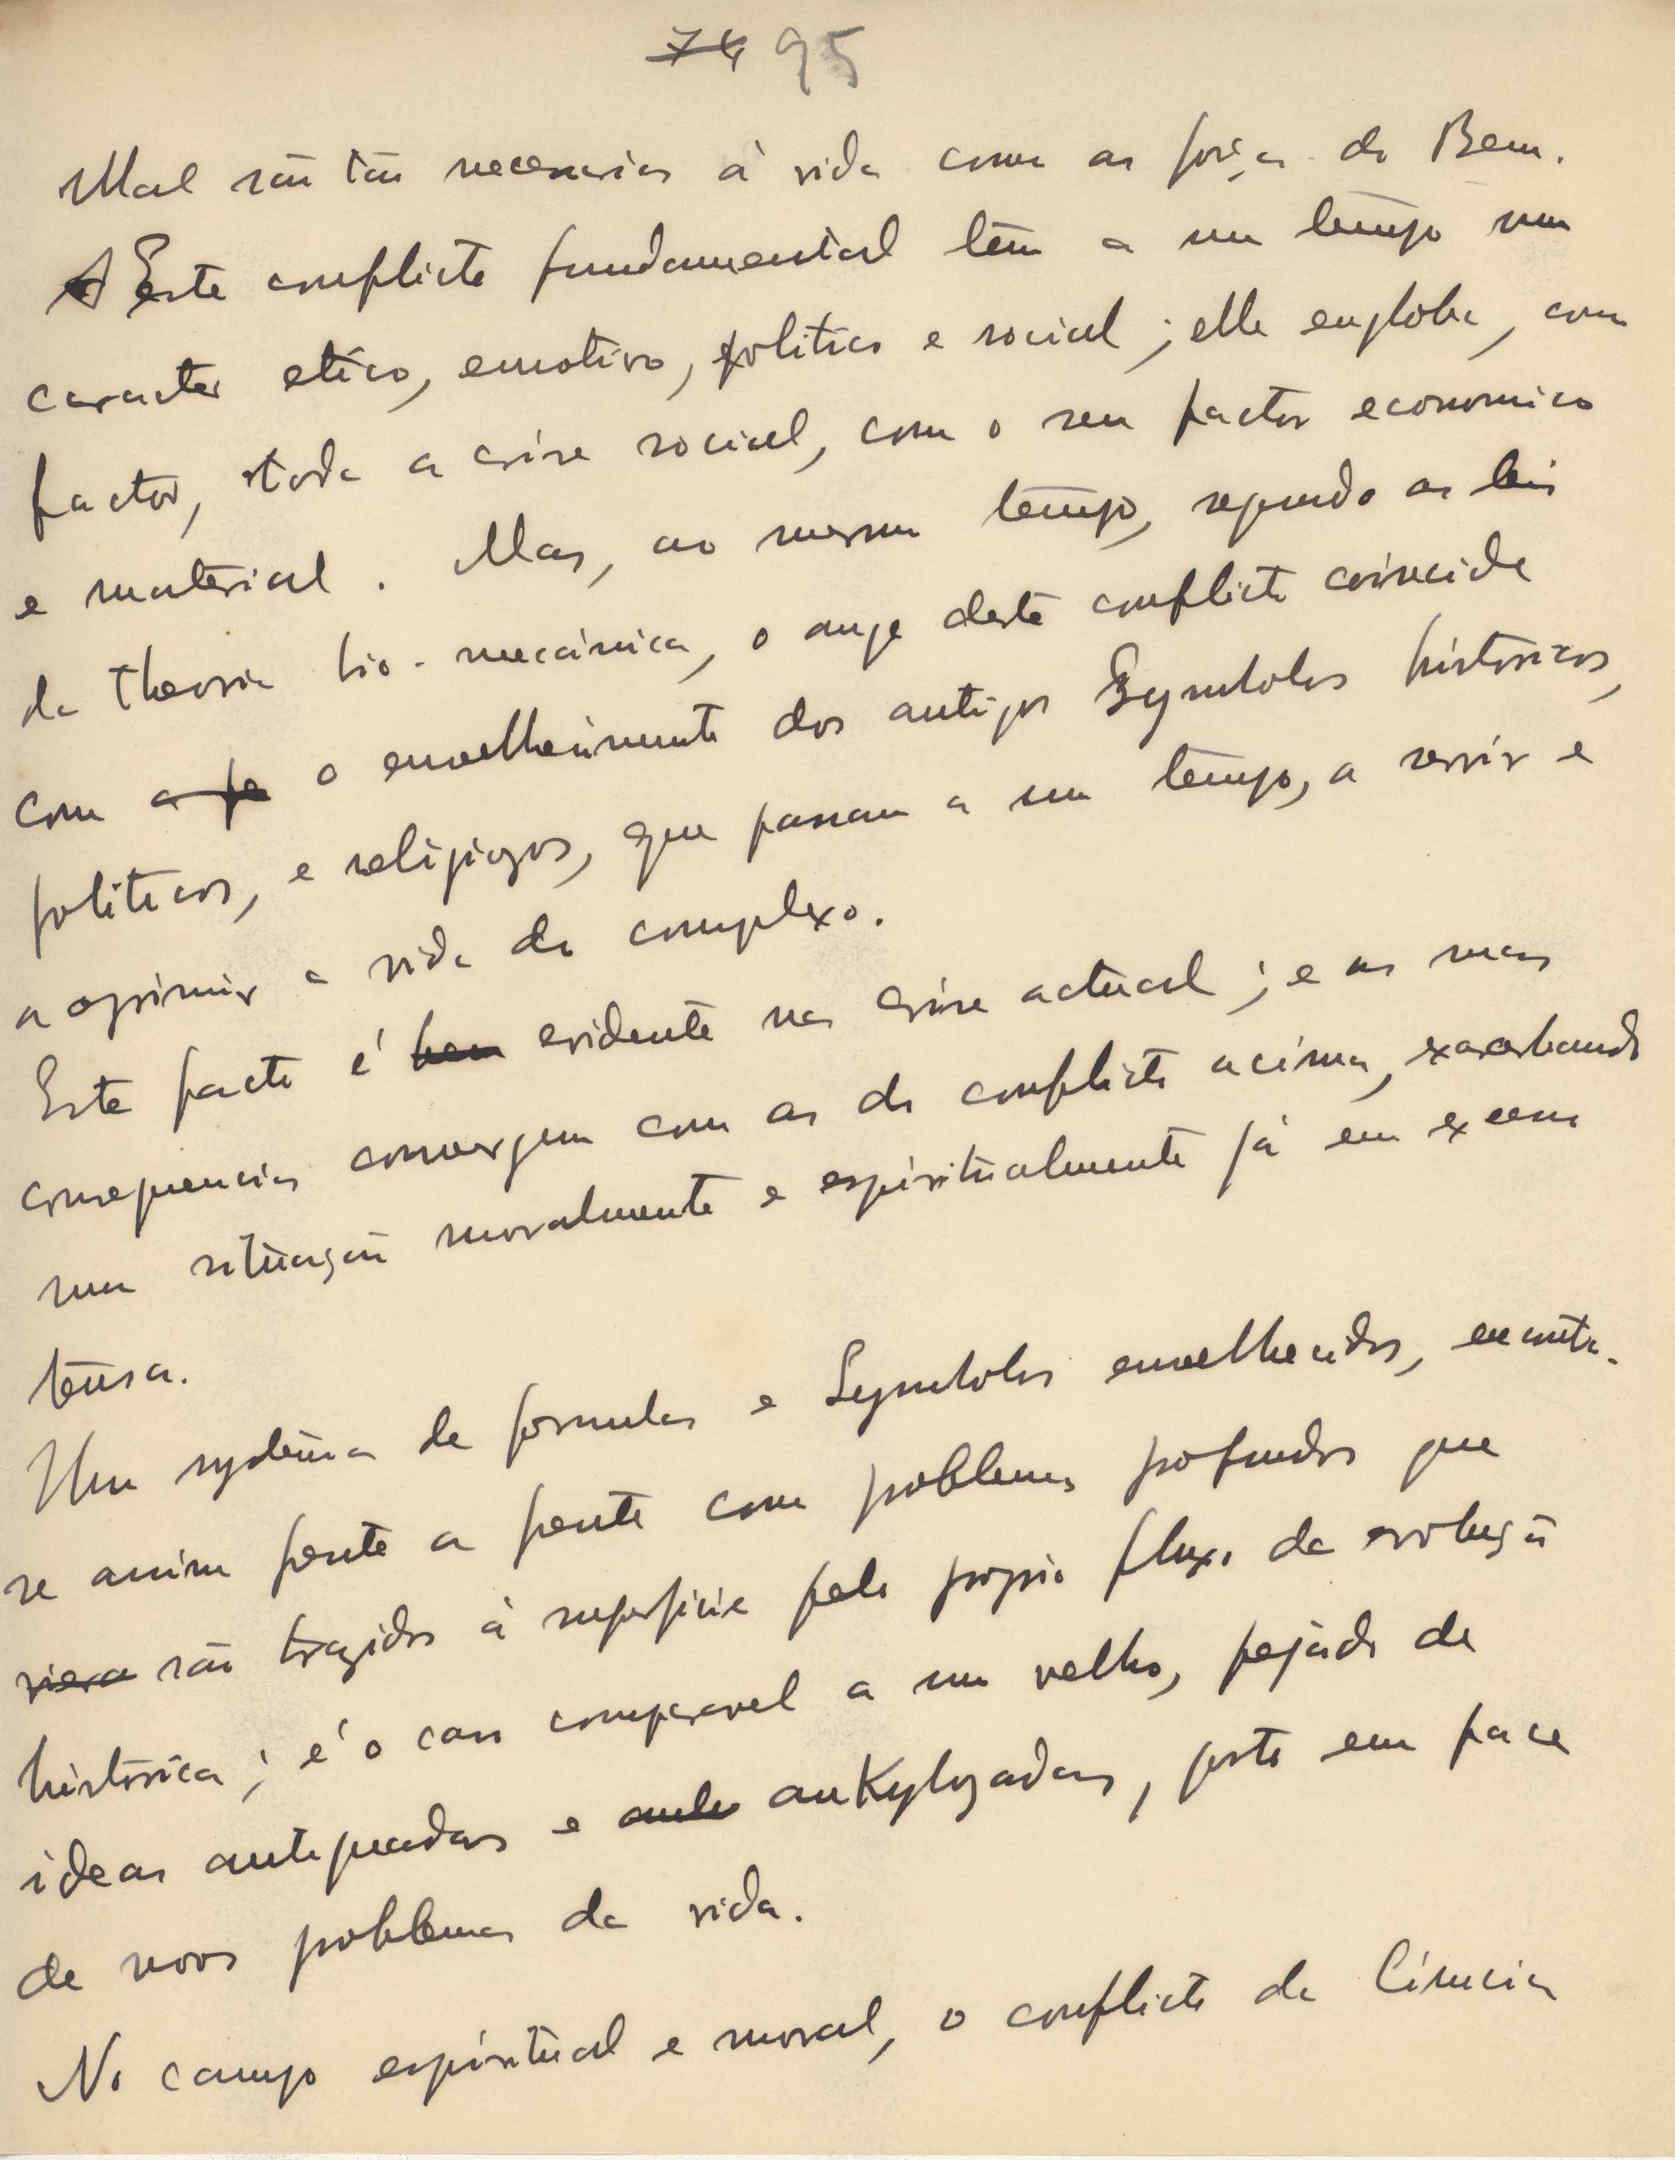 74 95
Mal são tão necessarias á vida como as forças do Bem.
Este conflicto fundamental têm a um tempo um
caracter etico, emotivo, politico e social; elle engloba, como
factor, toda a crise social, com o seu factor economico
e material. Mas, ao mesmo tempo, segundo as leis
da theoria bio-mecánica, o auge deste conflicto coincide
com a fo o envelhecimento dos antigos Symbolos historicos,
politicos, e religiozos, que passam a um tempo, a servir e
a oprimir a vida do complexo.
Este facto é bem evidente na crise actual; e as suas
consequencias convergem com as do conflicto acima, exacerbando
uma situação moralmente e espiritualmente já em extremo
tensa.
Um systema de formulas e Symbolos envelhecidos, encontra-
se assim frente a frente com problemas profundos que
viera são trazidos á superficie pelo proprio fluxo da evolução
historica; é o caso comparavel a um velho, pejado de
ideas antiquadas e ankylozadas, posto em face
de novos problemas da vida.
No campo espiritual e moral, o conflicto da Ciencia